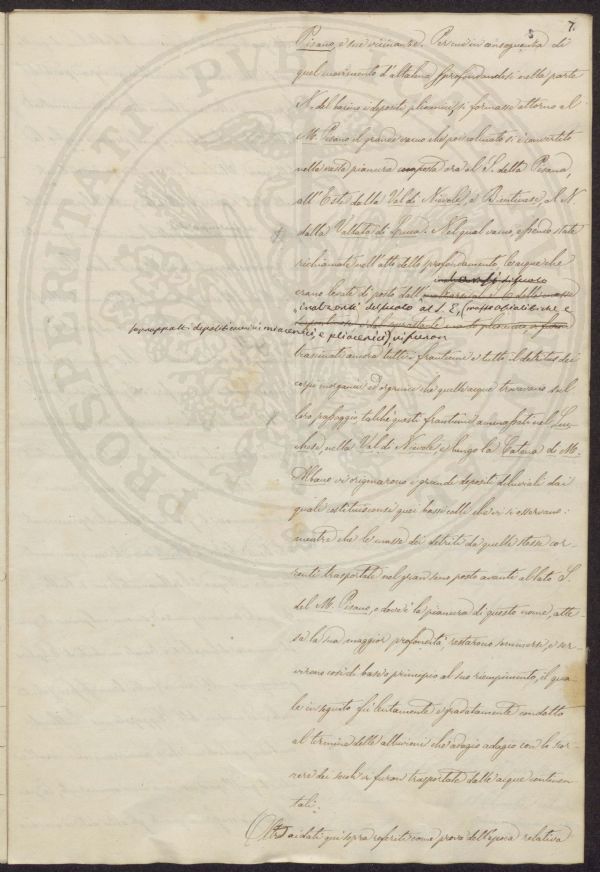 5 7.
Pisano, e sue vicinanze. Per cui in conseguenza di
quel movimento d'altalena sprofondandosi nella parte
N. del bacino i depositi pliocenici, si formasse attorno al
M. Pisano il grande vacuo che poi colmato si è convertito
nella vasta pianura posta ora al S. della Pisana,
all'Est dalla Val di Nievole, e Bientinese, al N.
dalla Vallata di Lucca. Nel qual vacuo, essendo state
richiamate nell'atto dello sprofondamento, le acque che
erano
inalzanti del suolo al S. E, (massa oltre e
sovrappatti depositi miocenici, e pliocenici), vi furon
trascinati ancora tutti i frantumi e tutto il detritus dei
corpi inorganici ed organici che quelle acque trovavano sul
loro passaggio talchè questi frantumi ammassati nel Luc-
chese, nella Val di Nievole, e lungo la Catena di M.
Albano vi originarono i grandi depositi diluviali dai
quali costituisconsi quei bassi colli che vi si osservano:
mentre che le masse dei detriti da quelle stesse cor-
renti trasportate nel gran seno posto avanti al lato S.
del M. Pisano, o dove è la pianura di questo nome, atte-
sa la sua maggior profondità, restarono sommersi, e ser-
virono così di base o principio al suo riempimento, il qua-
le in seguito fu lentamente e gradatamente condotto
al termine dalle alluvioni che adagio adagio con lo scor-
rere dei secoli vi furon trasportate dalle acque continen-
tali.
Oltre ai dati qui sopra referiti come prova dell'epoca relativa
PROSPERITATI PUBLICAE